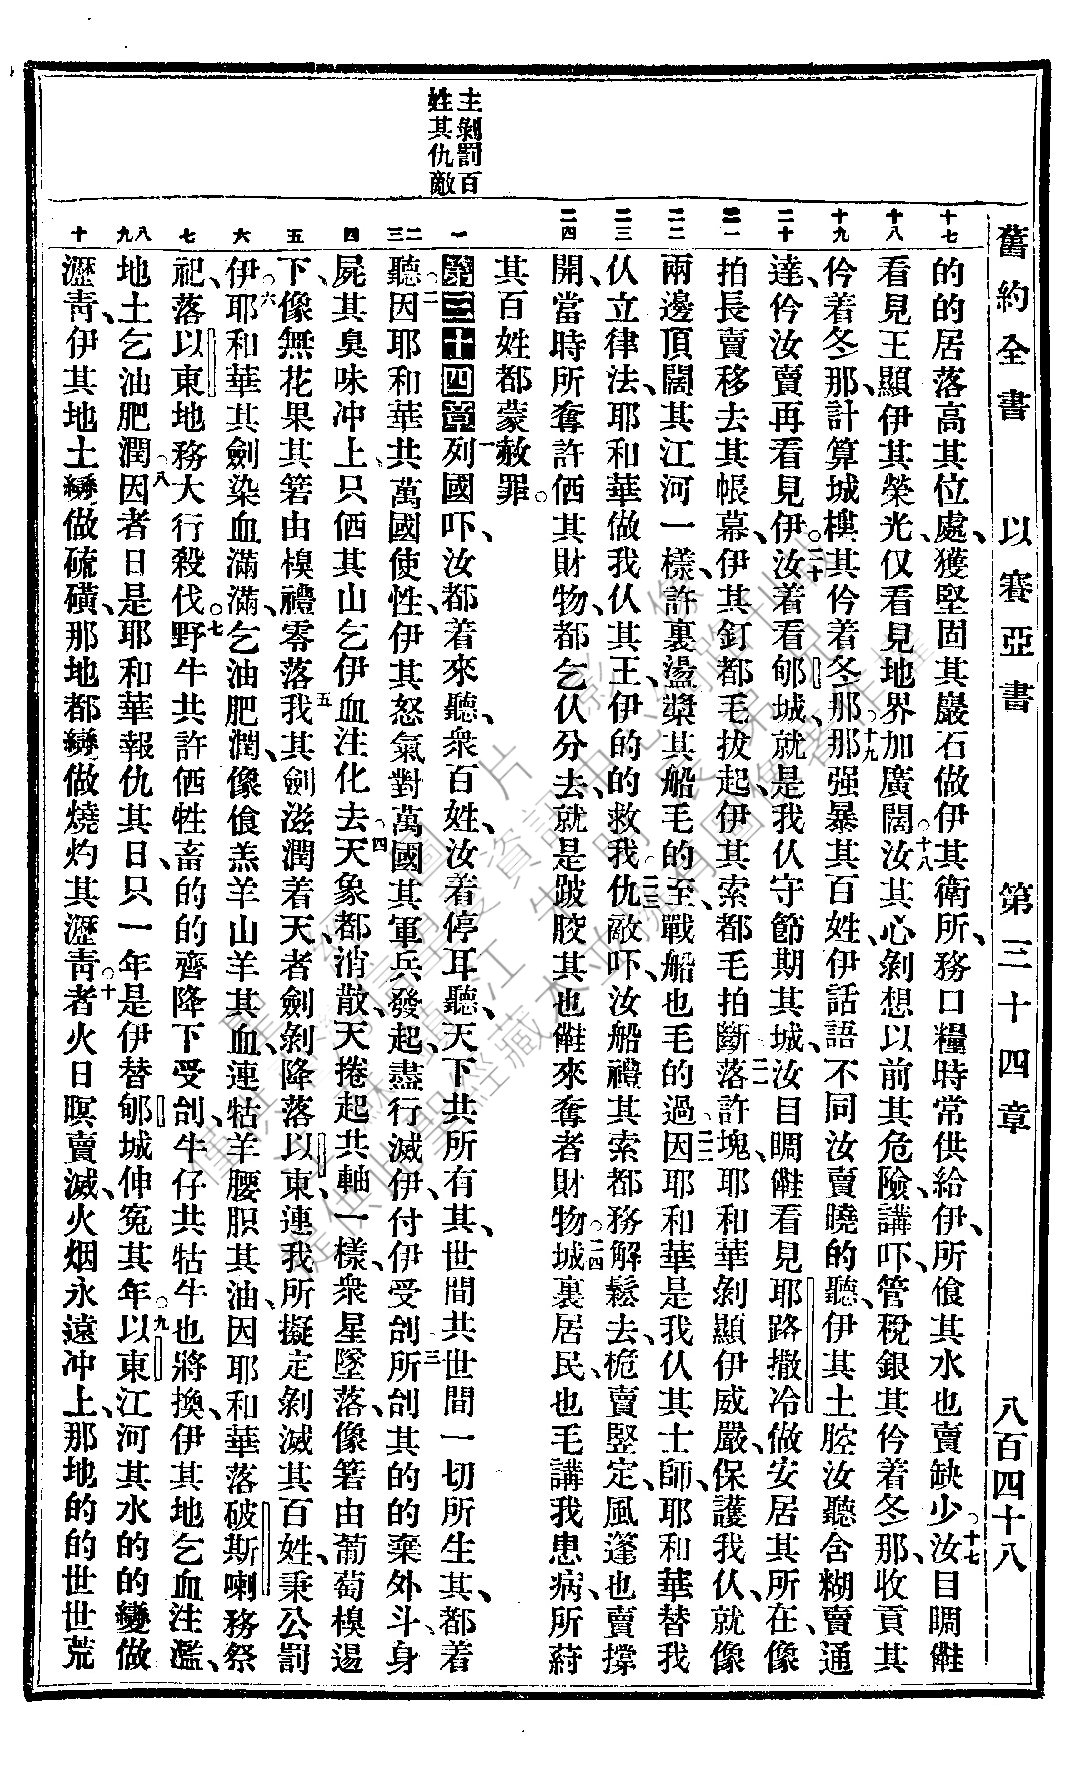 舊約全書　以賽亞書　第三十四章　八百四十八
主剝罰百
姓其仇敵
十七
的的居落高其位處、獲堅固其巖石做伊其衛所、務口糧時常供給伊、所飡其水也賣缺少、○十七汝目睭雔
十八
看見王顯伊其榮光、仅看見地界加廣闊、○十八汝其心剝想以前其危險、講吓、管稅銀其伶着冬那、收貢其
十九
伶着冬那、計算城樓其伶着冬那、○十九那强暴其百姓、伊話語不同汝賣曉的聽、伊其土腔汝聽含糊賣通
二十
達、伶汝賣再看見伊、○二十汝着看郇城、就是我仈守節期其城、汝目睭雔看見耶路撒冷、做安居其所在、像
二一
拍長賣移去其帳幕、伊其釘都毛拔起、伊其索都毛拍斷、二一落許塊、耶和華剝顯伊威嚴、保護我仈、就像
二二
兩邊頂闊其江河一樣、許裏盪槳其船毛的至、戰船也毛的過、○二二因耶和華是我仈其士師、耶和華替我
二三
仈立律法、耶和華做我仈其王、伊的的救我、○二三仇敵吓、汝船禮其索都務解鬆去、桅賣竪定、風篷也賣撑
二四
開、當時所奪許伵其財物、都乞仈分去、就是跛骹其也雔來奪者財物、○二四城裏居民、也毛講我患病、所蒔
其百姓都蒙赦罪○
一
第三十四章一列國吓、汝都着來聽、衆百姓、汝着停耳聽、天下共所有其、世間共世間一切所生其、都着
二三
聽、○二因耶和華共萬國使性、伊其怒氣對萬國其軍兵發起、盡行滅伊、付伊受刣、三所刣其的的棄外斗、身
四
屍其臭味冲上、只伵其山乞伊血注化去、○四天象都消散、天捲起共軸一樣、衆星墜落、像箬由葡萄模逿
五
下、像無花果其箬由模禮零落、五我其劍滋潤着天、者劍剝降落以東、連我所擬定剝滅其百姓、秉公罰
六
伊、○六耶和華其劍染血滿滿、乞油肥潤、像飡羔羊山羊其血、連牯羊腰脤其油、因耶和華落破斯喇務祭
七
祀、落以東地務大行殺伐、○七野牛共許伵牲畜的的齊降下受刣、牛仔共牯牛也將換、伊其地乞血注濫、
八九
地土乞油肥潤、○八因者日是耶和華報仇其日、只一年是伊替郇城伸冤其年、○九以東江河其水的的變做
十
瀝靑、伊其地土變做硫磺、那地都變做燒灼其瀝靑、○十者火日暝賣滅、火烟永遠冲上、那地的的世世荒